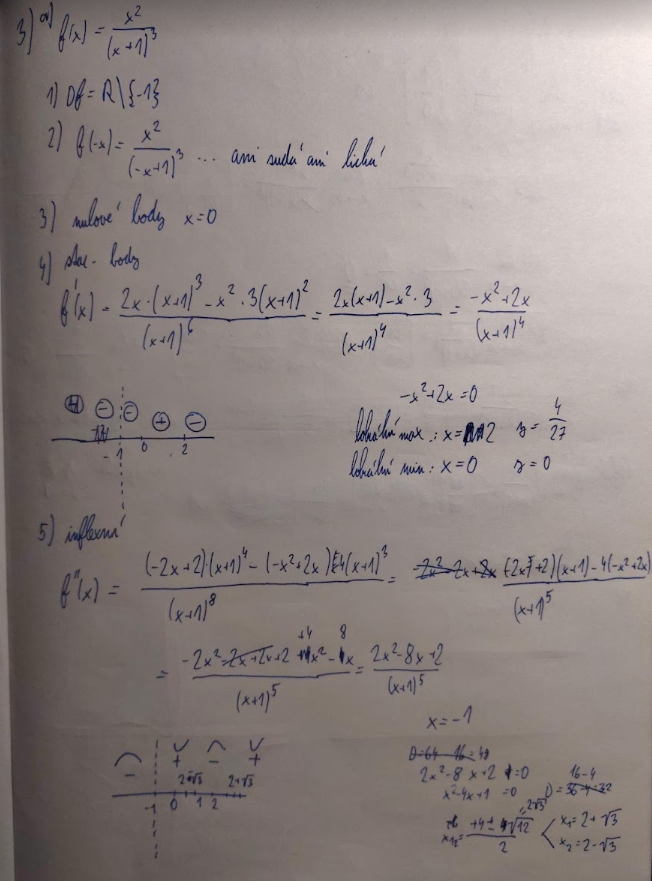 3) a) f(x) = x²/(x+1)³
1) Df = R\{-1}
2) f(-x) = x²/(-x+1)³ ... ani sudá ani lichá
3) nulové body x=0
4) stac. body
f'(x) = (2x·(x+1)³ - x²·3(x+1)²)/(x+1)⁶ = (2x(x+1) - x²·3)/(x+1)⁴ = (-x²+2x)/(x+1)⁴
⊖ ⊖ ⊕ ⊖
-1 0 2
-x²+2x=0
lokální max.: x=2 y=4/27
lokální min.: x=0 y=0
5) inflexní
f''(x) = ((-2x+2)·(x+1)⁴ - (-x²+2x)·4(x+1)³)/(x+1)⁸ = ((-2x+2)(x+1) - 4(-x²+2x))/(x+1)⁵
= (-2x² - 2x + 2x + 2 + 4x² - 8x)/(x+1)⁵ = (2x²-8x+2)/(x+1)⁵
x=-1
⌒ ∪ ⌒ ∪
- + - +
2-√3 2+√3
-1 0 1 2
D=64-16=48
2x²-8x+2=0
x²-4x+1=0 D=16-4
x₁₂ = (+4±√12)/2 =2√3
x₁=2+√3
x₂=2-√3